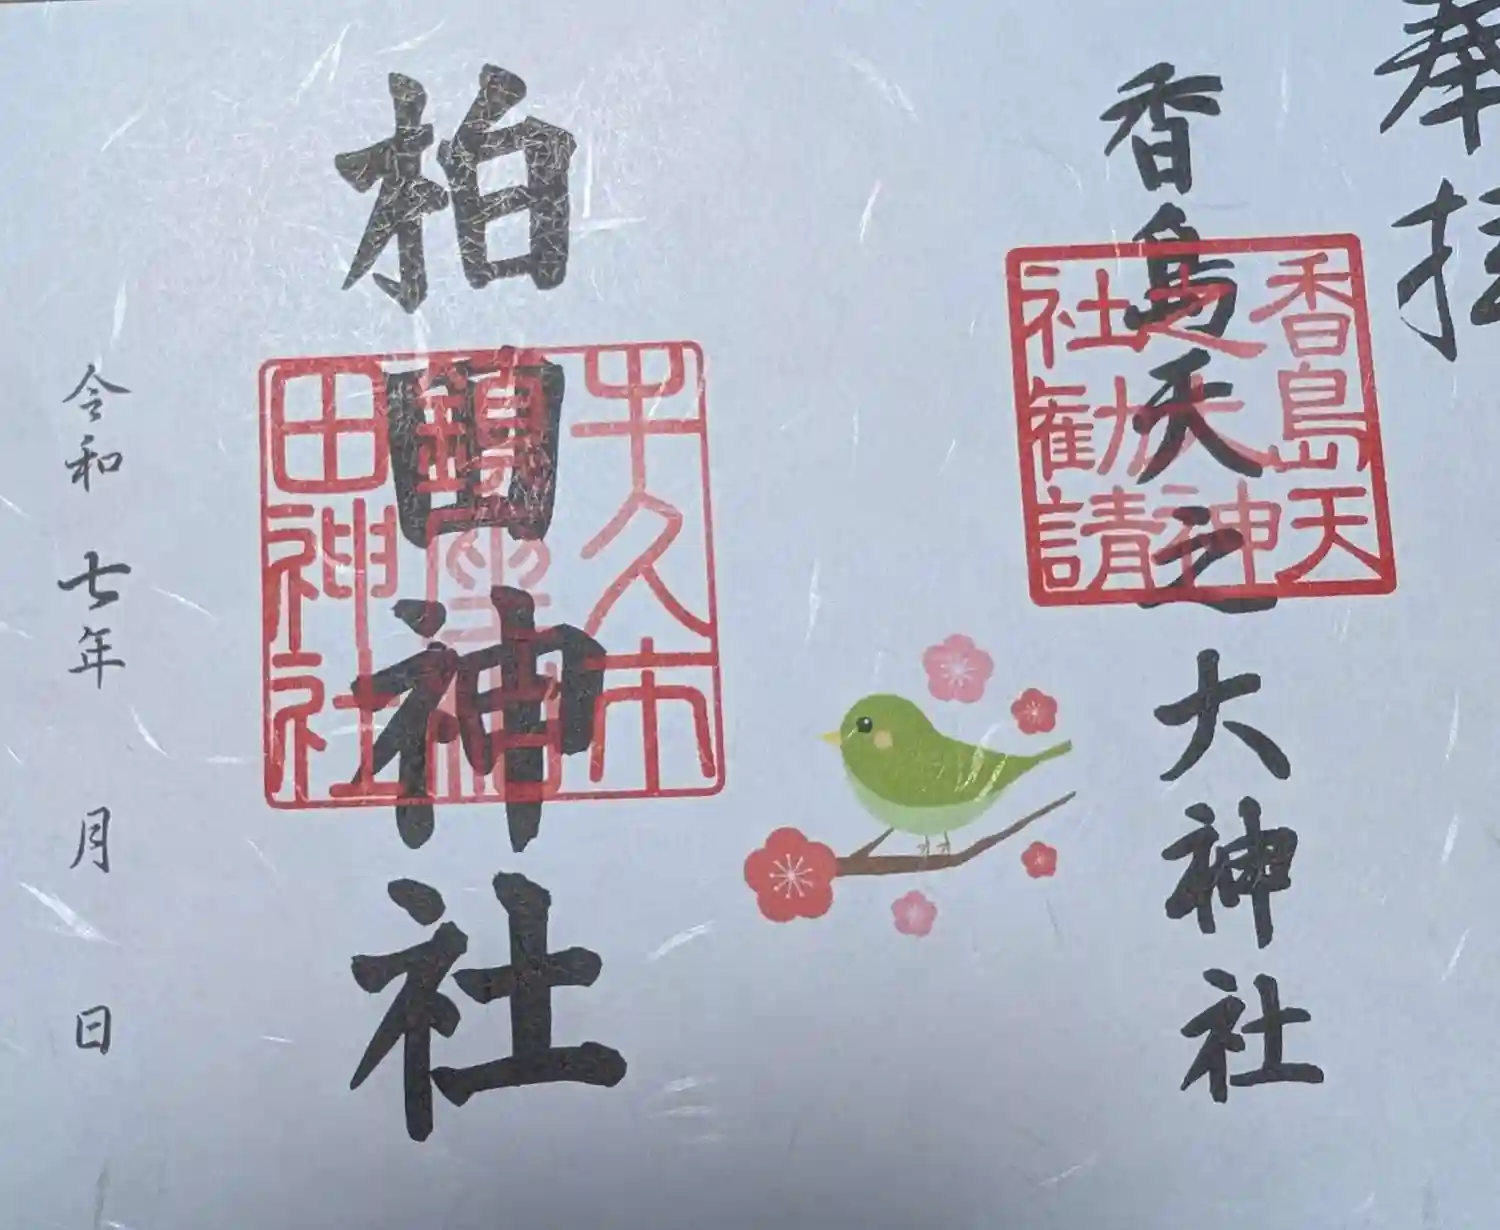 奉拝
香島天之大神社
香島天
之大神
社勧請
柏田神社
牛久市
鎮座柏
田神社
令和 七年 月 日